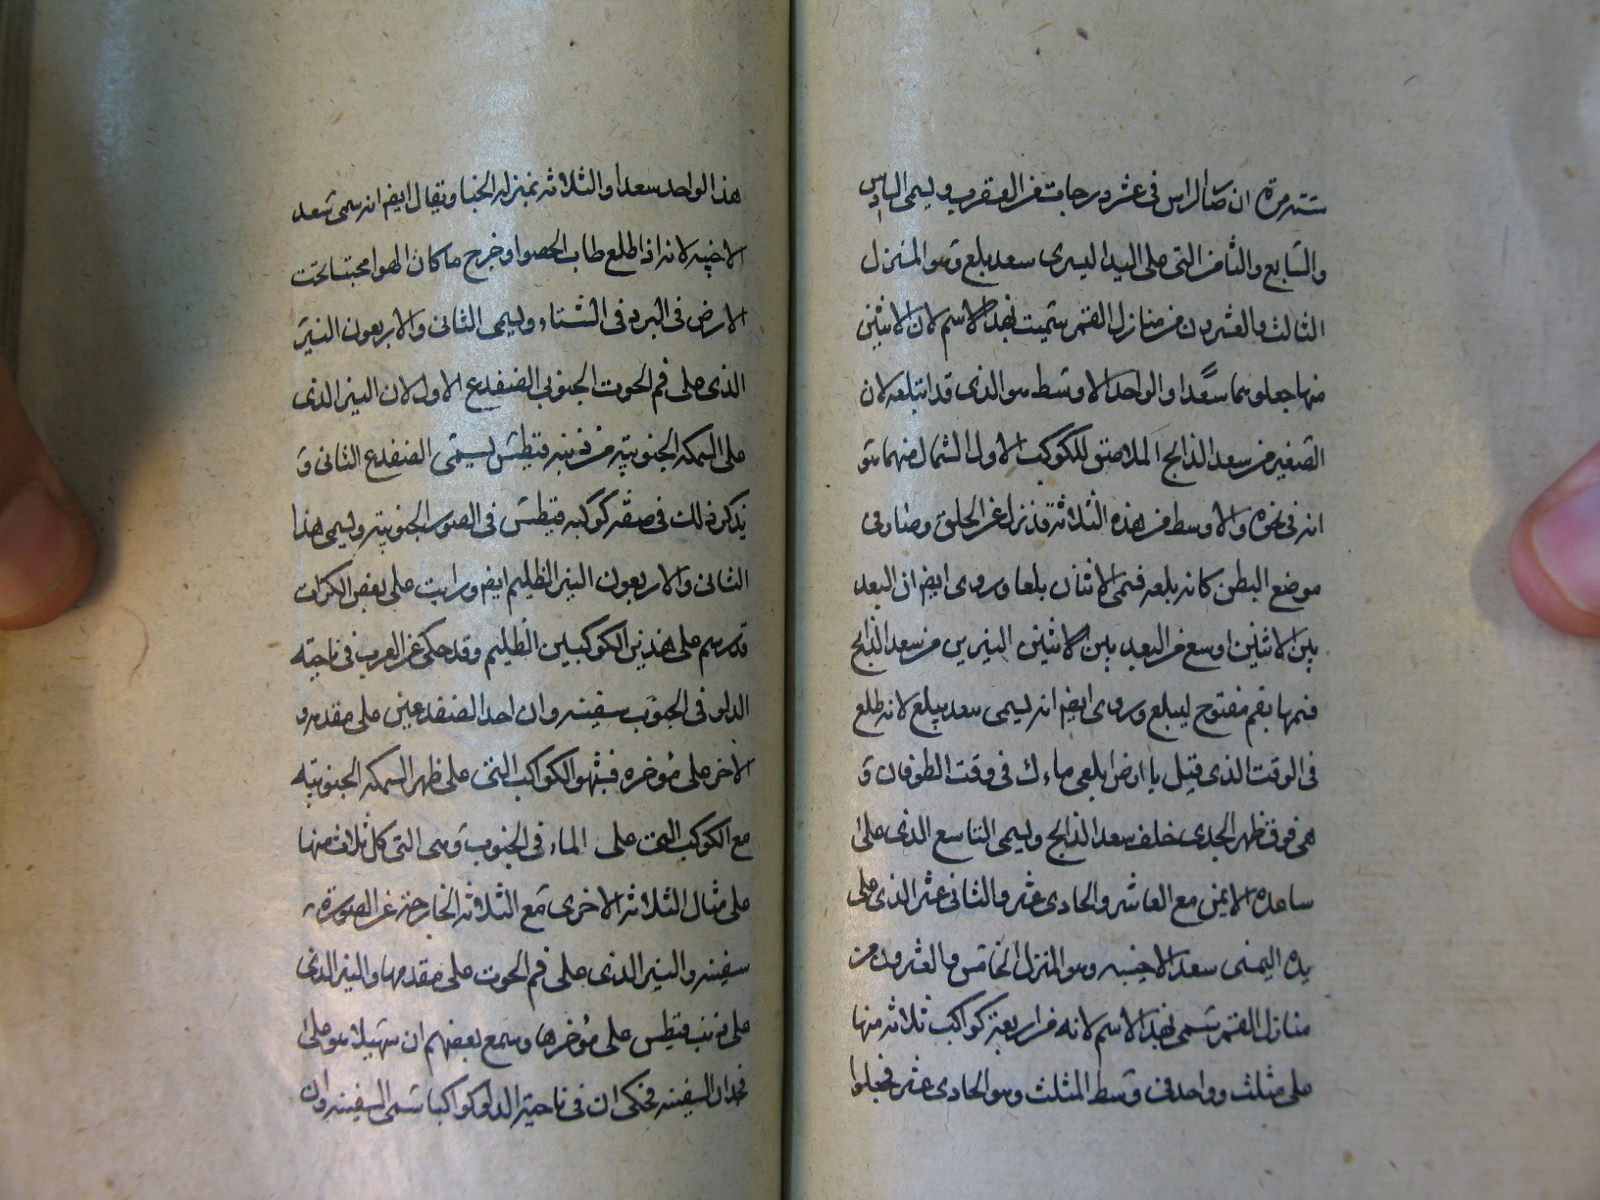 ستته مرة ان صار الراس فى عشر درجات من العقرب وليسمى السادس
والسابع والثامن التى على اليد اليسرى سعد بلع وهو المنزل
الثالث والعشرون من منازل القمر سميت بهذا الاسم لان الاثنين
منها جعلوهما سعدا والواحد الاوسط هو الذى قد ابتلعه لان
الصغير من سعد الذابح الملاصق للكوكب الاول الشمالى منهما هو
انه فى نحره والاوسط من هذه الثلاثة قد نزل عن الحلق وصار فى
موضع البطن كانه بلعه فسمى الاثنان بلعا وروى ايضا ان البعد
بين الاثنين اوسع من البعد بين الاثنين النيرين من سعد الذابح
فمها بفم مفتوح ليبلع وروى ايضا انه ليسمى سعد بلع لانه طلع
فى الوقت الذى قيل يا ارض ابلعى ماءك فى وقت الطوفان و
هى فوق ظهر الجدى خلف سعد الذابح وليسمى التاسع الذى على
ساعده الايمن مع العاشر والحادى عشر والثانى عشر الذى على
يده اليمنى سعد الاخبيه وهو المنزل الخامس والعشرون من
منازل القمر تسمى بهذا الاسم لانه من اربعة كواكب ثلاثه منها
على مثلث وواحد فى وسط المثلث وهو الحادى عشر فجعلوا
هذا الواحد سعدا والثلاثه بمنزله الخبا ويقال ايضا انه سمى سعد
الاخبيه لانه اذا طلع طاب الهوا وخرج ما كان الهوا محتبسا تحت
الارض فى البرد فى الشتاء وليسمى الثانى والاربعون النير
الذى على فم الحوت الجنوبى الضفدع الاول لان النير الذى
على السمكه الجنوبيه من ذنب قيطس ليسمى الضفدع الثانى و
نذكر ذلك فى صفه كوكبه قيطس فى الصور الجنوبيه وليسمى هذا
الثانى والاربعون النير الظليم ايضا ورايت على بعض الكرات
قد رسم على هذين الكوكبين الظليم وقد حكى عن العرب فى ناحيه
الدلو فى الجنوب سفينه وان احد الضفدعين على مقدمه و
الاخر على مؤخره فشبهوا الكواكب التى على ظهر السمكه الجنوبيه
مع الكوكب التى على الماء فى الجنوب وهى التى كل ثلاث منها
على مثال الثلاثه الاخرى مع الثلاثه الخارجه عن الصورة
سفينه والنير الذى على فم الحوت على مقدمها والنير الذى
على ذنب قيطس على مؤخرها وسمع بعضهم ان سهيلا هو على
مجداف السفينه فحكى ان فى ناحيه الدلو كواكبا تسمى السفينه وان